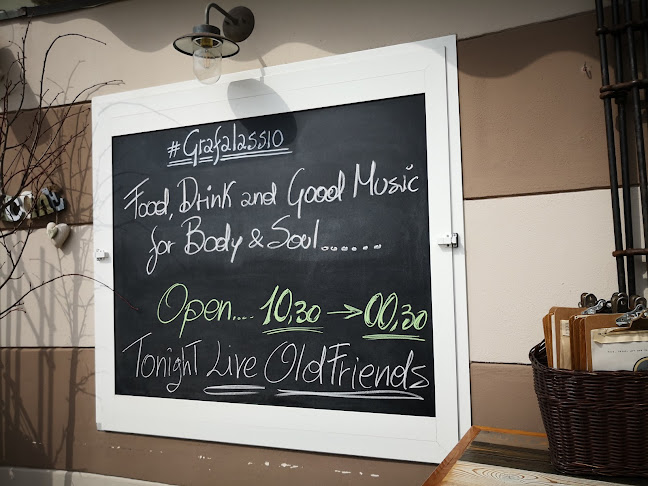 #Grafalassio
Food, Drink and Good Music
for Body & Soul......
Open.... 10,30 → 00,30
Tonight Live Old Friends